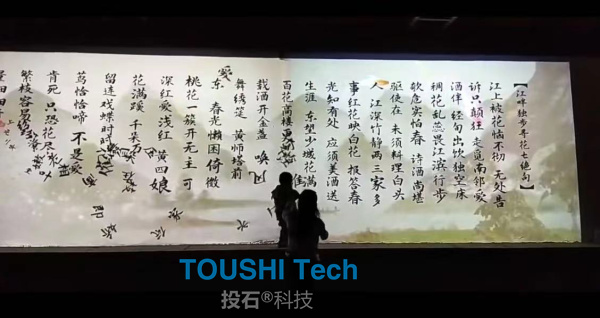 【江畔独步寻花七绝句】
江上被花恼不彻 无处告
诉只颠狂 走觅南邻爱
酒伴 经旬出饮独空床
稠花乱蕊畏江滨 行步
欹危实怕春 诗酒尚堪
驱使在 未须料理白头
人 江深竹静两三家 多
事红花映白花 报答春
光知有处 应须美酒送
生涯 东望少城花满
百花高楼更 佳
载酒开金盏 唤
舞绣筵 黄师塔前
东 春光懒困倚微
桃花一簇开无主 可
深红爱浅红 黄四娘
花满蹊 千朵万
留连戏蝶时时
莺恰恰啼 不是爱
肯死 只恐花尽
繁枝容易
TOUSHI Tech
投石®科技